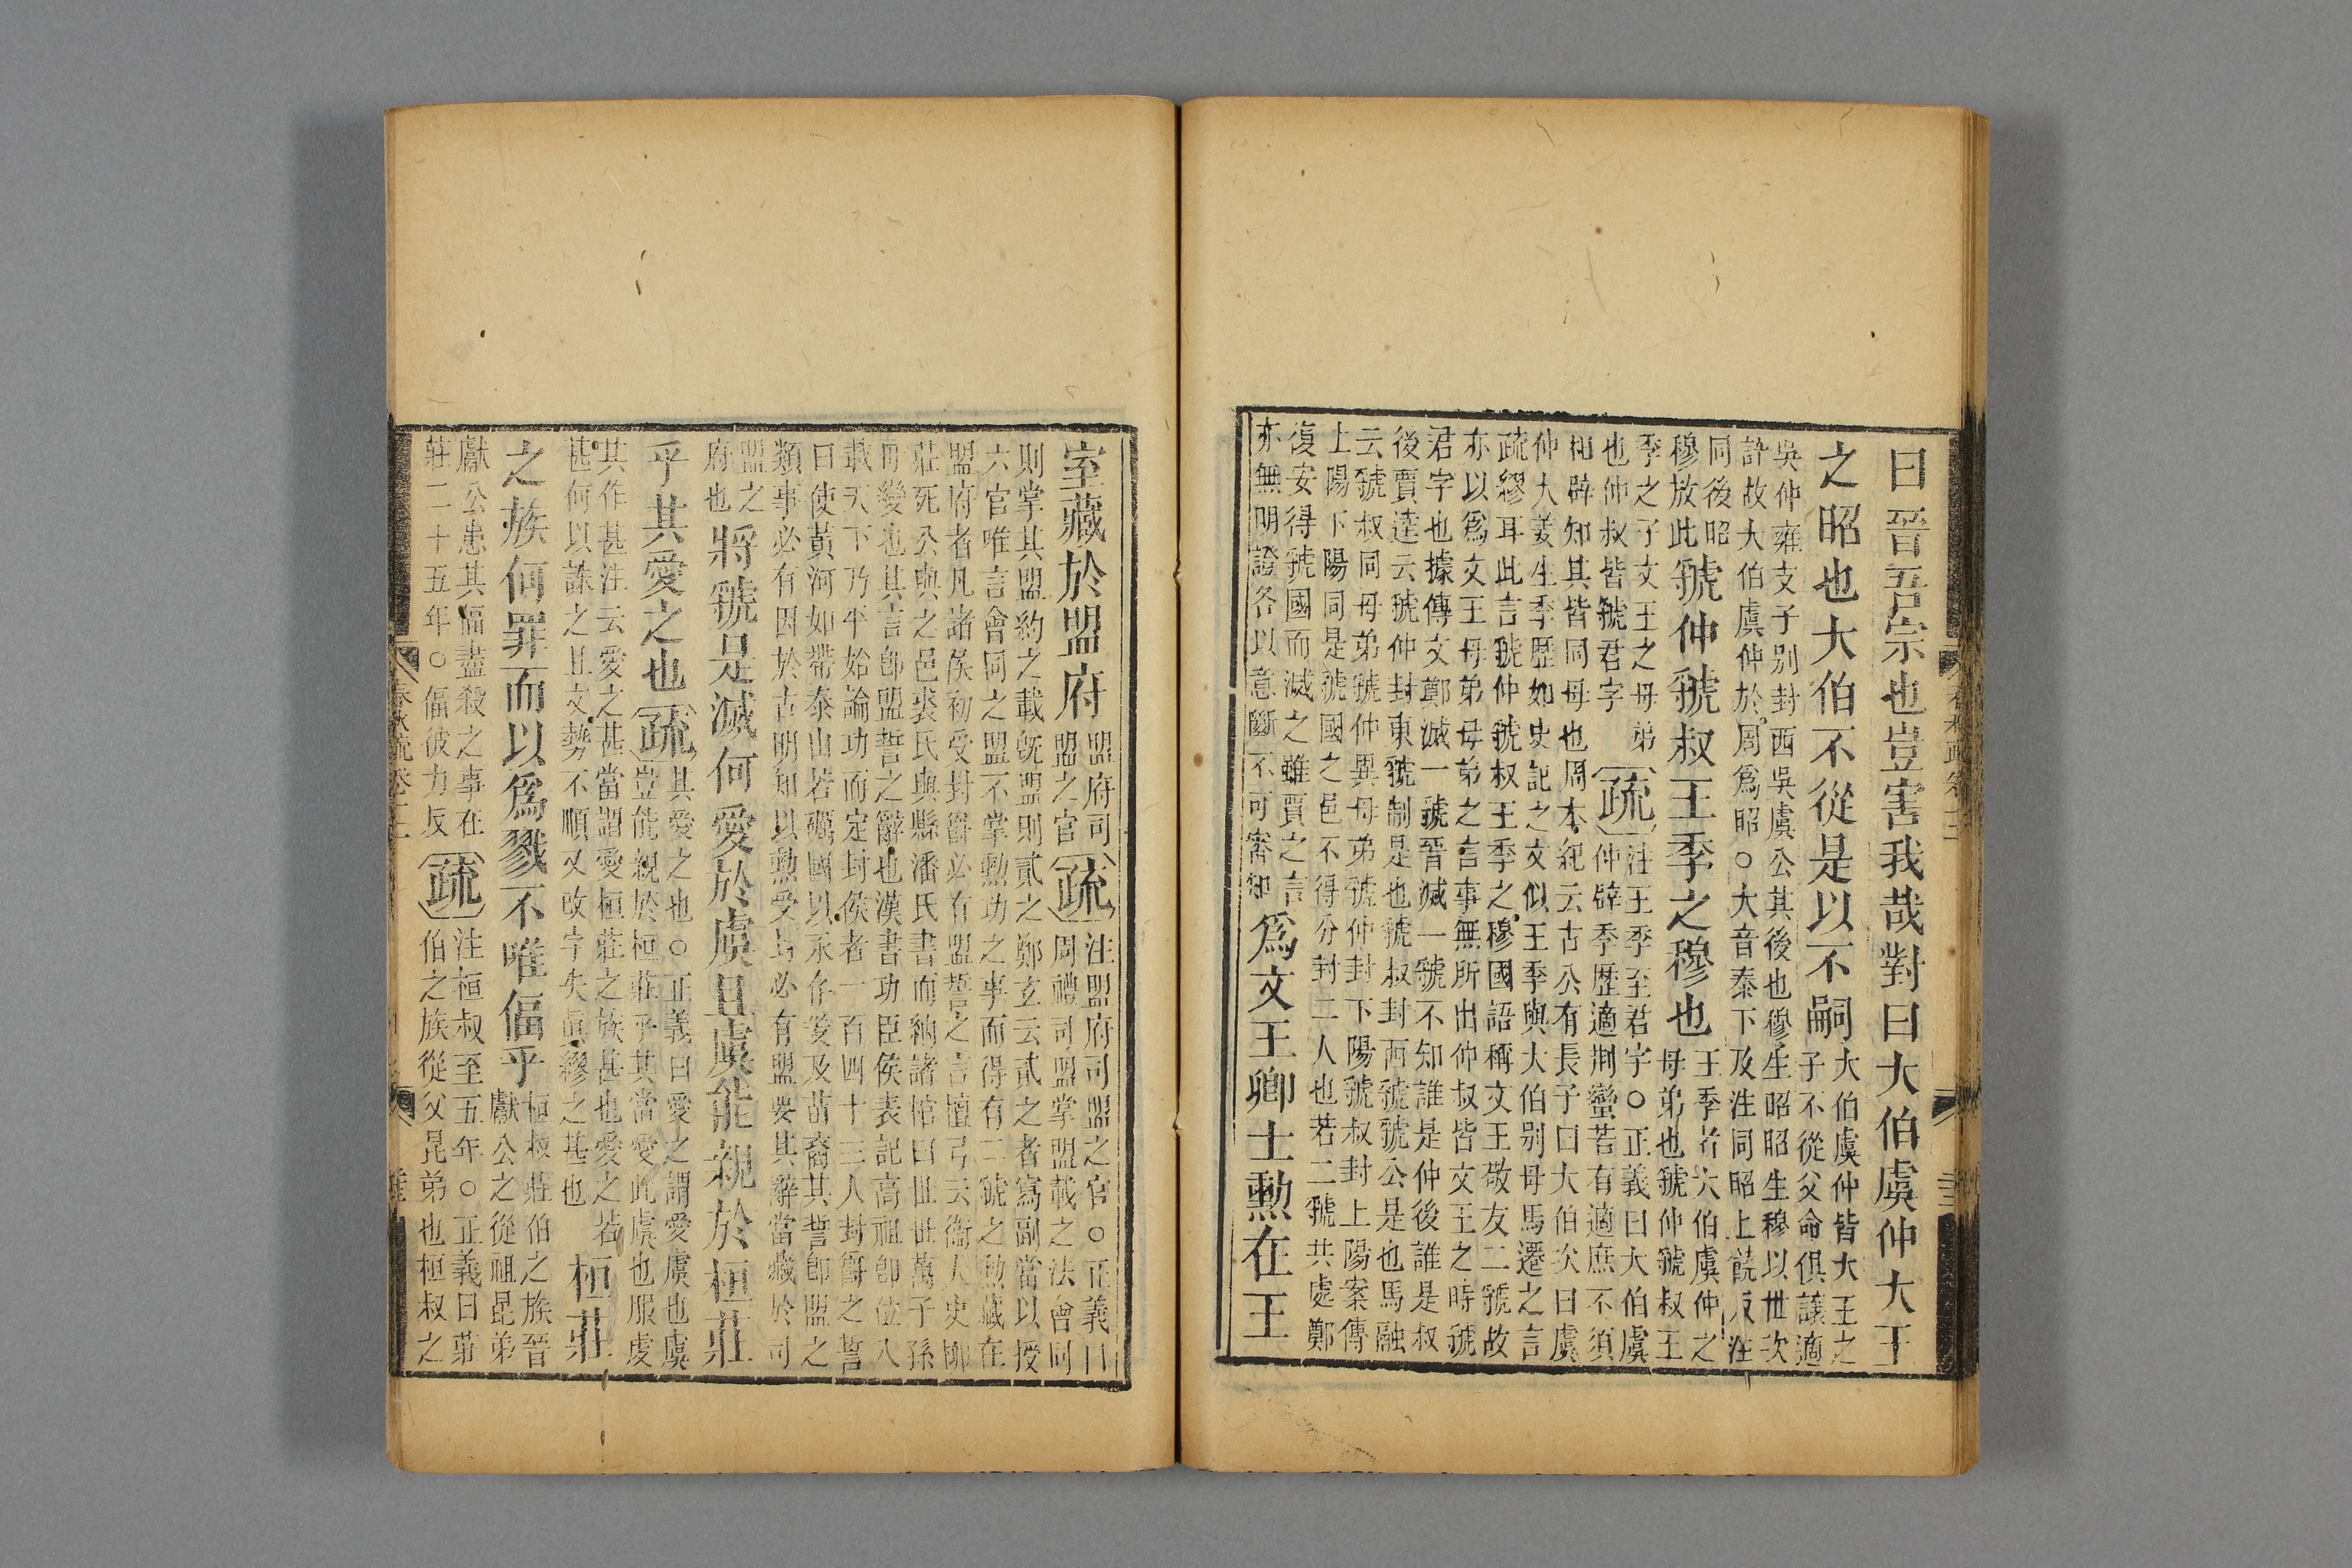 曰晉吾宗也豈害我哉對曰大伯虞仲大王
之昭也大伯不從是以不嗣大伯虞仲皆大王之
子不從父命俱讓適
吳仲雍支子別封西吳虞公其後也穆生昭昭生穆以世次
許故大伯虞仲於周爲昭○大音泰下及注同昭上饒反注
同後昭
穆放此
虢仲虢叔王季之穆也王季者大伯虞仲之
母弟也虢仲虢叔王
季之子文王之母弟
也仲叔皆虢君字
疏注王季至君字○正義曰大伯虞
仲辟季歷適荆蠻若有適庶不須
相辟知其皆同母也周本紀云古公有長子曰大伯次曰虞
仲大姜生季歷如史記之文似王季與大伯別母馬遷之言
疏繆耳此言虢仲虢叔王季之穆國語稱文王敬友二虢故
亦以爲文王母弟母弟之言事無所出仲叔皆文王之時虢
君字也據傳文鄭滅一虢晉滅一虢不知誰是仲後誰是叔
後賈逵云虢仲封東虢制是也虢叔封西虢虢公是也馬融
云虢叔同母弟虢仲異母弟虢仲封下陽虢叔封上陽案傳
上陽下陽同是虢國之邑不得分封二人也若二虢共處鄭
復安得虢國而滅之雖賈之言
亦無明證各以意斷不可審知
爲文王卿士勲在王
室藏於盟府盟府司
盟之官
疏注盟府司盟之官○正義曰
周禮司盟掌盟載之法會同
則掌其盟約之載旣盟則貳之鄭玄云貳之者寫副當以授
六官唯言會同之盟不掌勲功之事而得有二虢之勲藏在
盟府者凡諸侯初受封爵必有盟誓之言檀弓云衛人史柳
莊死公與之邑裘氏與縣潘氏書而納諸棺曰世世萬子孫
毋變也其言卽盟誓之辭也漢書功臣侯表記高祖卽位八
載天下乃平始論功而定封侯者一百四十三人封爵之誓
曰使黃河如帶泰山若礪國以永存爰及苗裔其誓卽盟之
類事必有因於古明知以勲受封必有盟要其辭當藏於司
盟之
府也
將虢是滅何愛於虞且虞能親於桓莊
乎其愛之也疏其愛之也○正義曰愛之謂愛虞也虞
豈能親於桓莊乎其當愛此虞也服虔
其作甚注云愛之甚當謂愛桓莊之族甚也愛之若
甚何以誅之且文勢不順又改字失眞繆之甚也
桓莊
之族何罪而以爲戮不唯偪乎桓叔莊伯之族晉
獻公之從祖昆弟
獻公患其偪盡殺之事在
莊二十五年○偪彼力反
疏注桓叔至五年○正義曰莊
伯之族從父昆弟也桓叔之
春秋疏卷十二